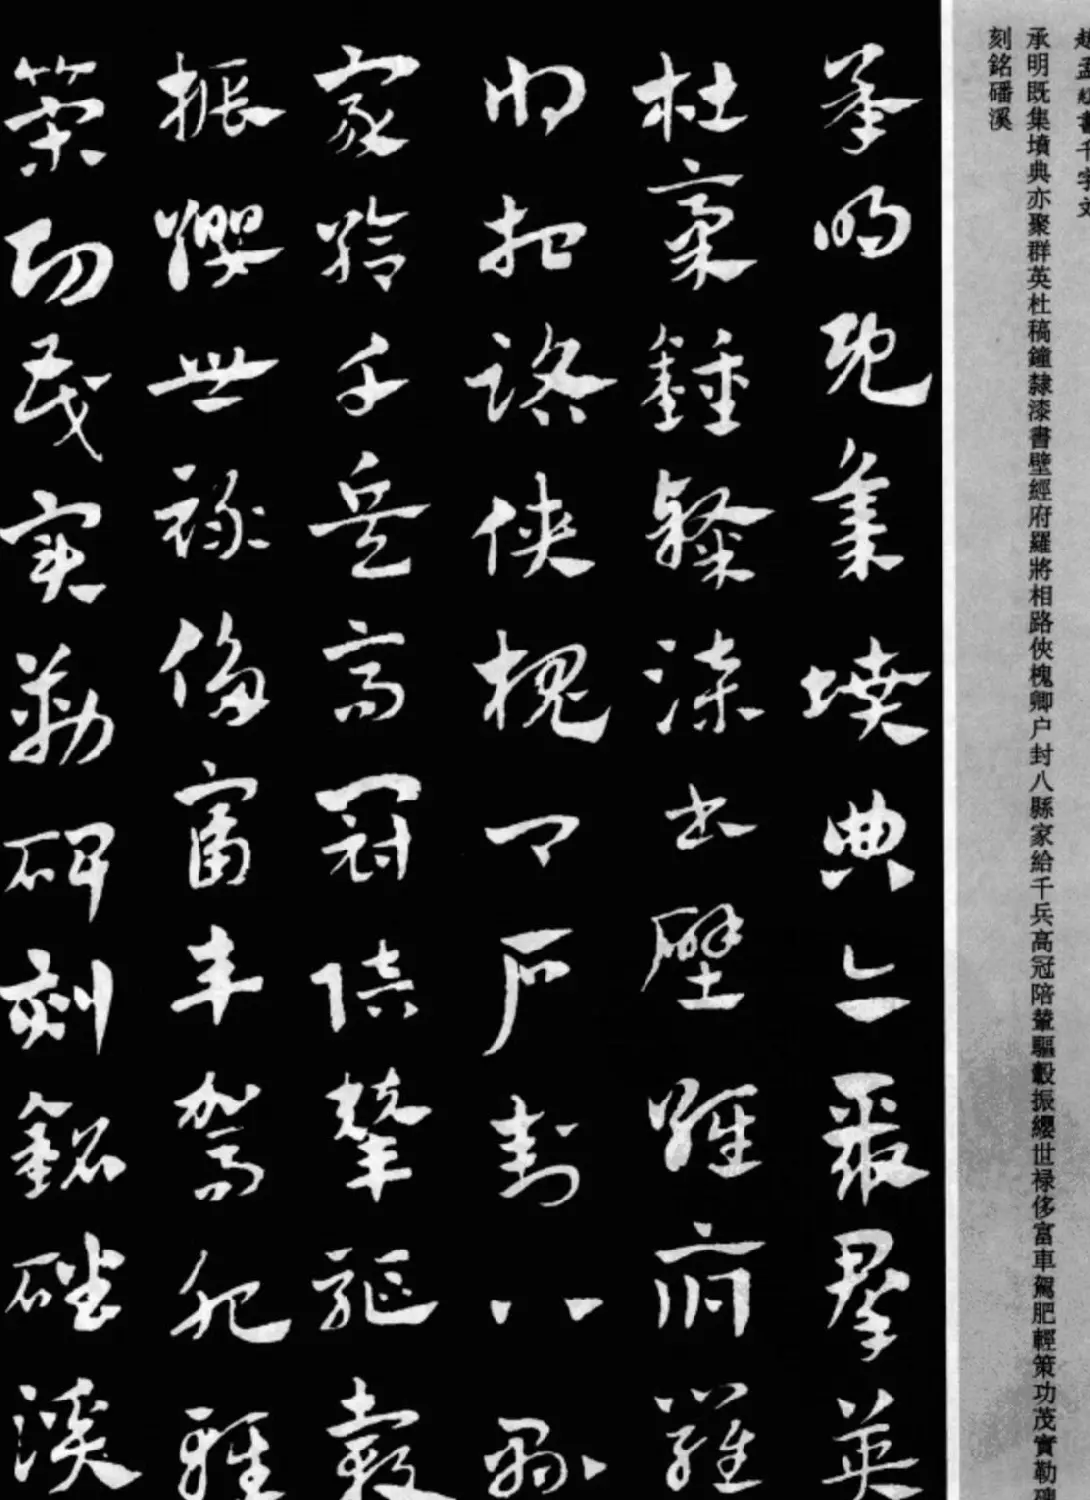 趙孟頫書千字文
承明既集墳典亦聚群英杜稿鐘隸漆書壁經府羅將相路俠槐卿户封八縣家給千兵高冠陪輦驅轂振纓世禄侈富車駕肥輕策功茂實勒碑
刻銘磻溪
承明既集墳典亦聚羣英
杜稾鍾隸漆書壁經府羅
將相路俠槐卿户封八縣
家給千兵高冠陪輦驅轂
振纓世禄侈富車駕肥輕
策功茂實勒碑刻銘磻溪